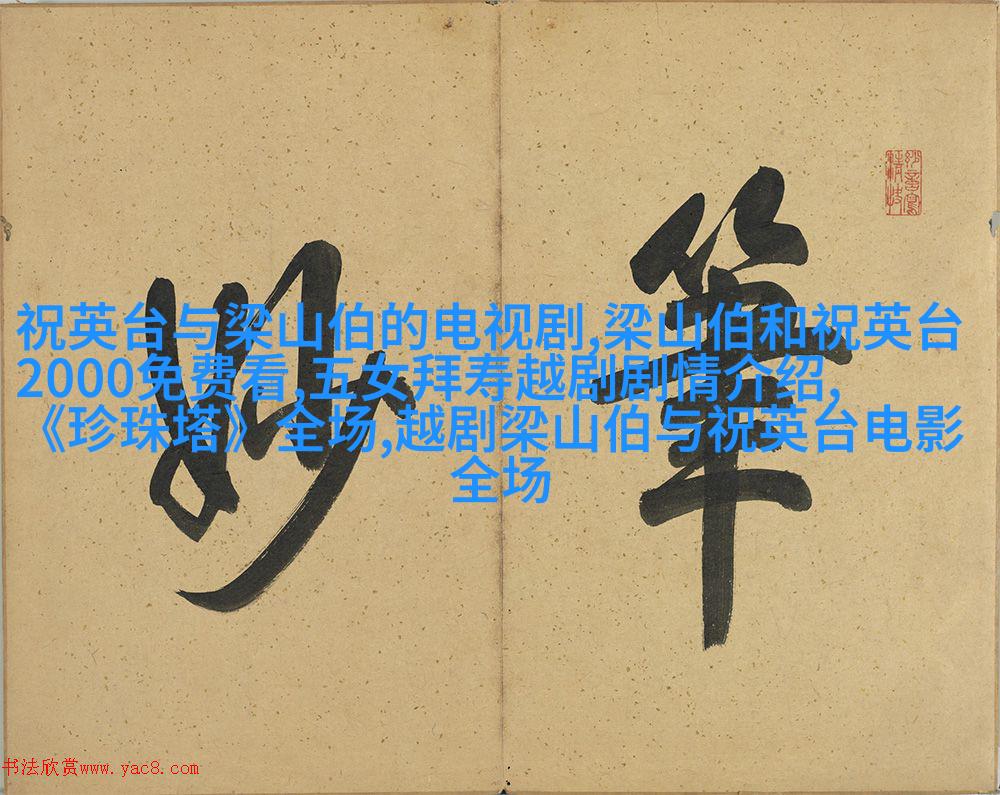 筆
妙
祝英台与梁山伯的电视剧,梁山伯和祝英台
2000免费看,五女拜寿越剧剧情介绍,
《珍珠塔》全场,越剧梁山伯与祝英台电影
全场
书法欣赏www.yac8.com